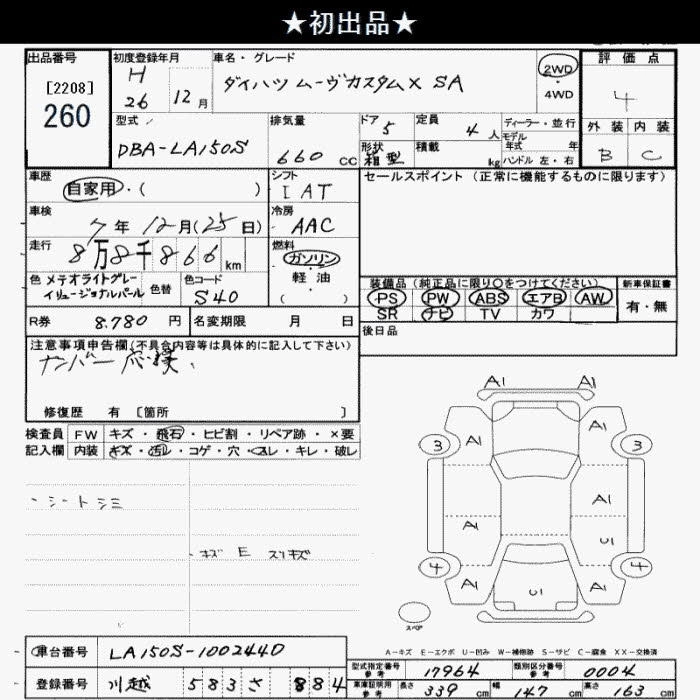 ★初出品★
出品番号 初度登録年月 車名・グレード 評価点
[2208]
260
H 26 12月
ダイハツ ムーヴカスタム X SA
2WD・4WD
4
型式 排気量 ドア 定員 ディーラー・並行
DBA-LA150S 660 CC 5 4人
モデル年式 年
形状 積載
箱型 kg ハンドル 左・右
外装 内装
B C
車歴 シフト セールスポイント (正常に機能するものに限ります)
自家用・( ) I AT
車検 冷房
7年12月(25日) AAC
走行 燃料
8万8千866km ガソリン・軽油・( )
色 メテオライトグレー 色替 色コード
イリュージョナルパール S40
装備品 (純正品に限り○をつけてください) 新車保証書
PS PW ABS エアB AW 有・無
SR ナビ TV カワ
R券 8.780円 名変期限 月 日
後日品
注意事項申告欄(不具合内容等は具体的に記入して下さい)
修復歴 有 [箇所 ]
検査員 FW キズ・飛石・ヒビ割・リペア跡・×要
記入欄 内装 キズ・汚レ・コゲ・穴・スレ・キレ・破レ
シートシミ
キズ E スリキズ
A1 A1
3 A1 A1 3
A1
A1 U1
4 A1 U1 A1 4
スペア
A-キズ E-エクボ U-凹み W-補修跡 S-サビ C-腐食 XX-交換済
車台番号 LA150S-1002440
型式指定番号 参考 17964 類別区分番号 参考 0004
登録番号 川越 583 さ 884
車庫証明用 参考 長さ 339cm 幅 147cm 高さ 163cm